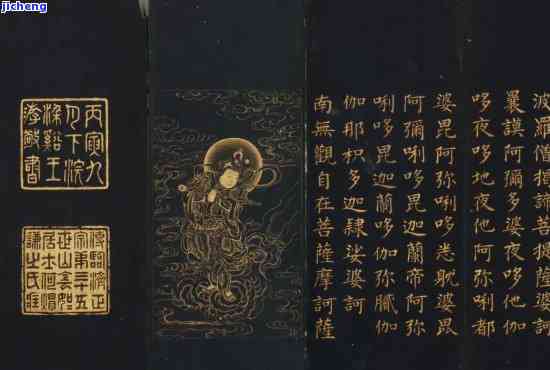 jicheng
波羅僧揭諦菩提薩婆訶
曩謨阿彌多婆夜哆他伽
哆夜哆地夜他阿弥唎都
婆毘阿弥唎哆悉耽婆毘
阿彌唎哆毘迦蘭帝阿弥
唎哆毘迦蘭哆伽弥膩伽
伽那枳多迦隸娑婆訶
南無觀自在菩薩摩訶薩
丙寅九
月下浣
谿王
書